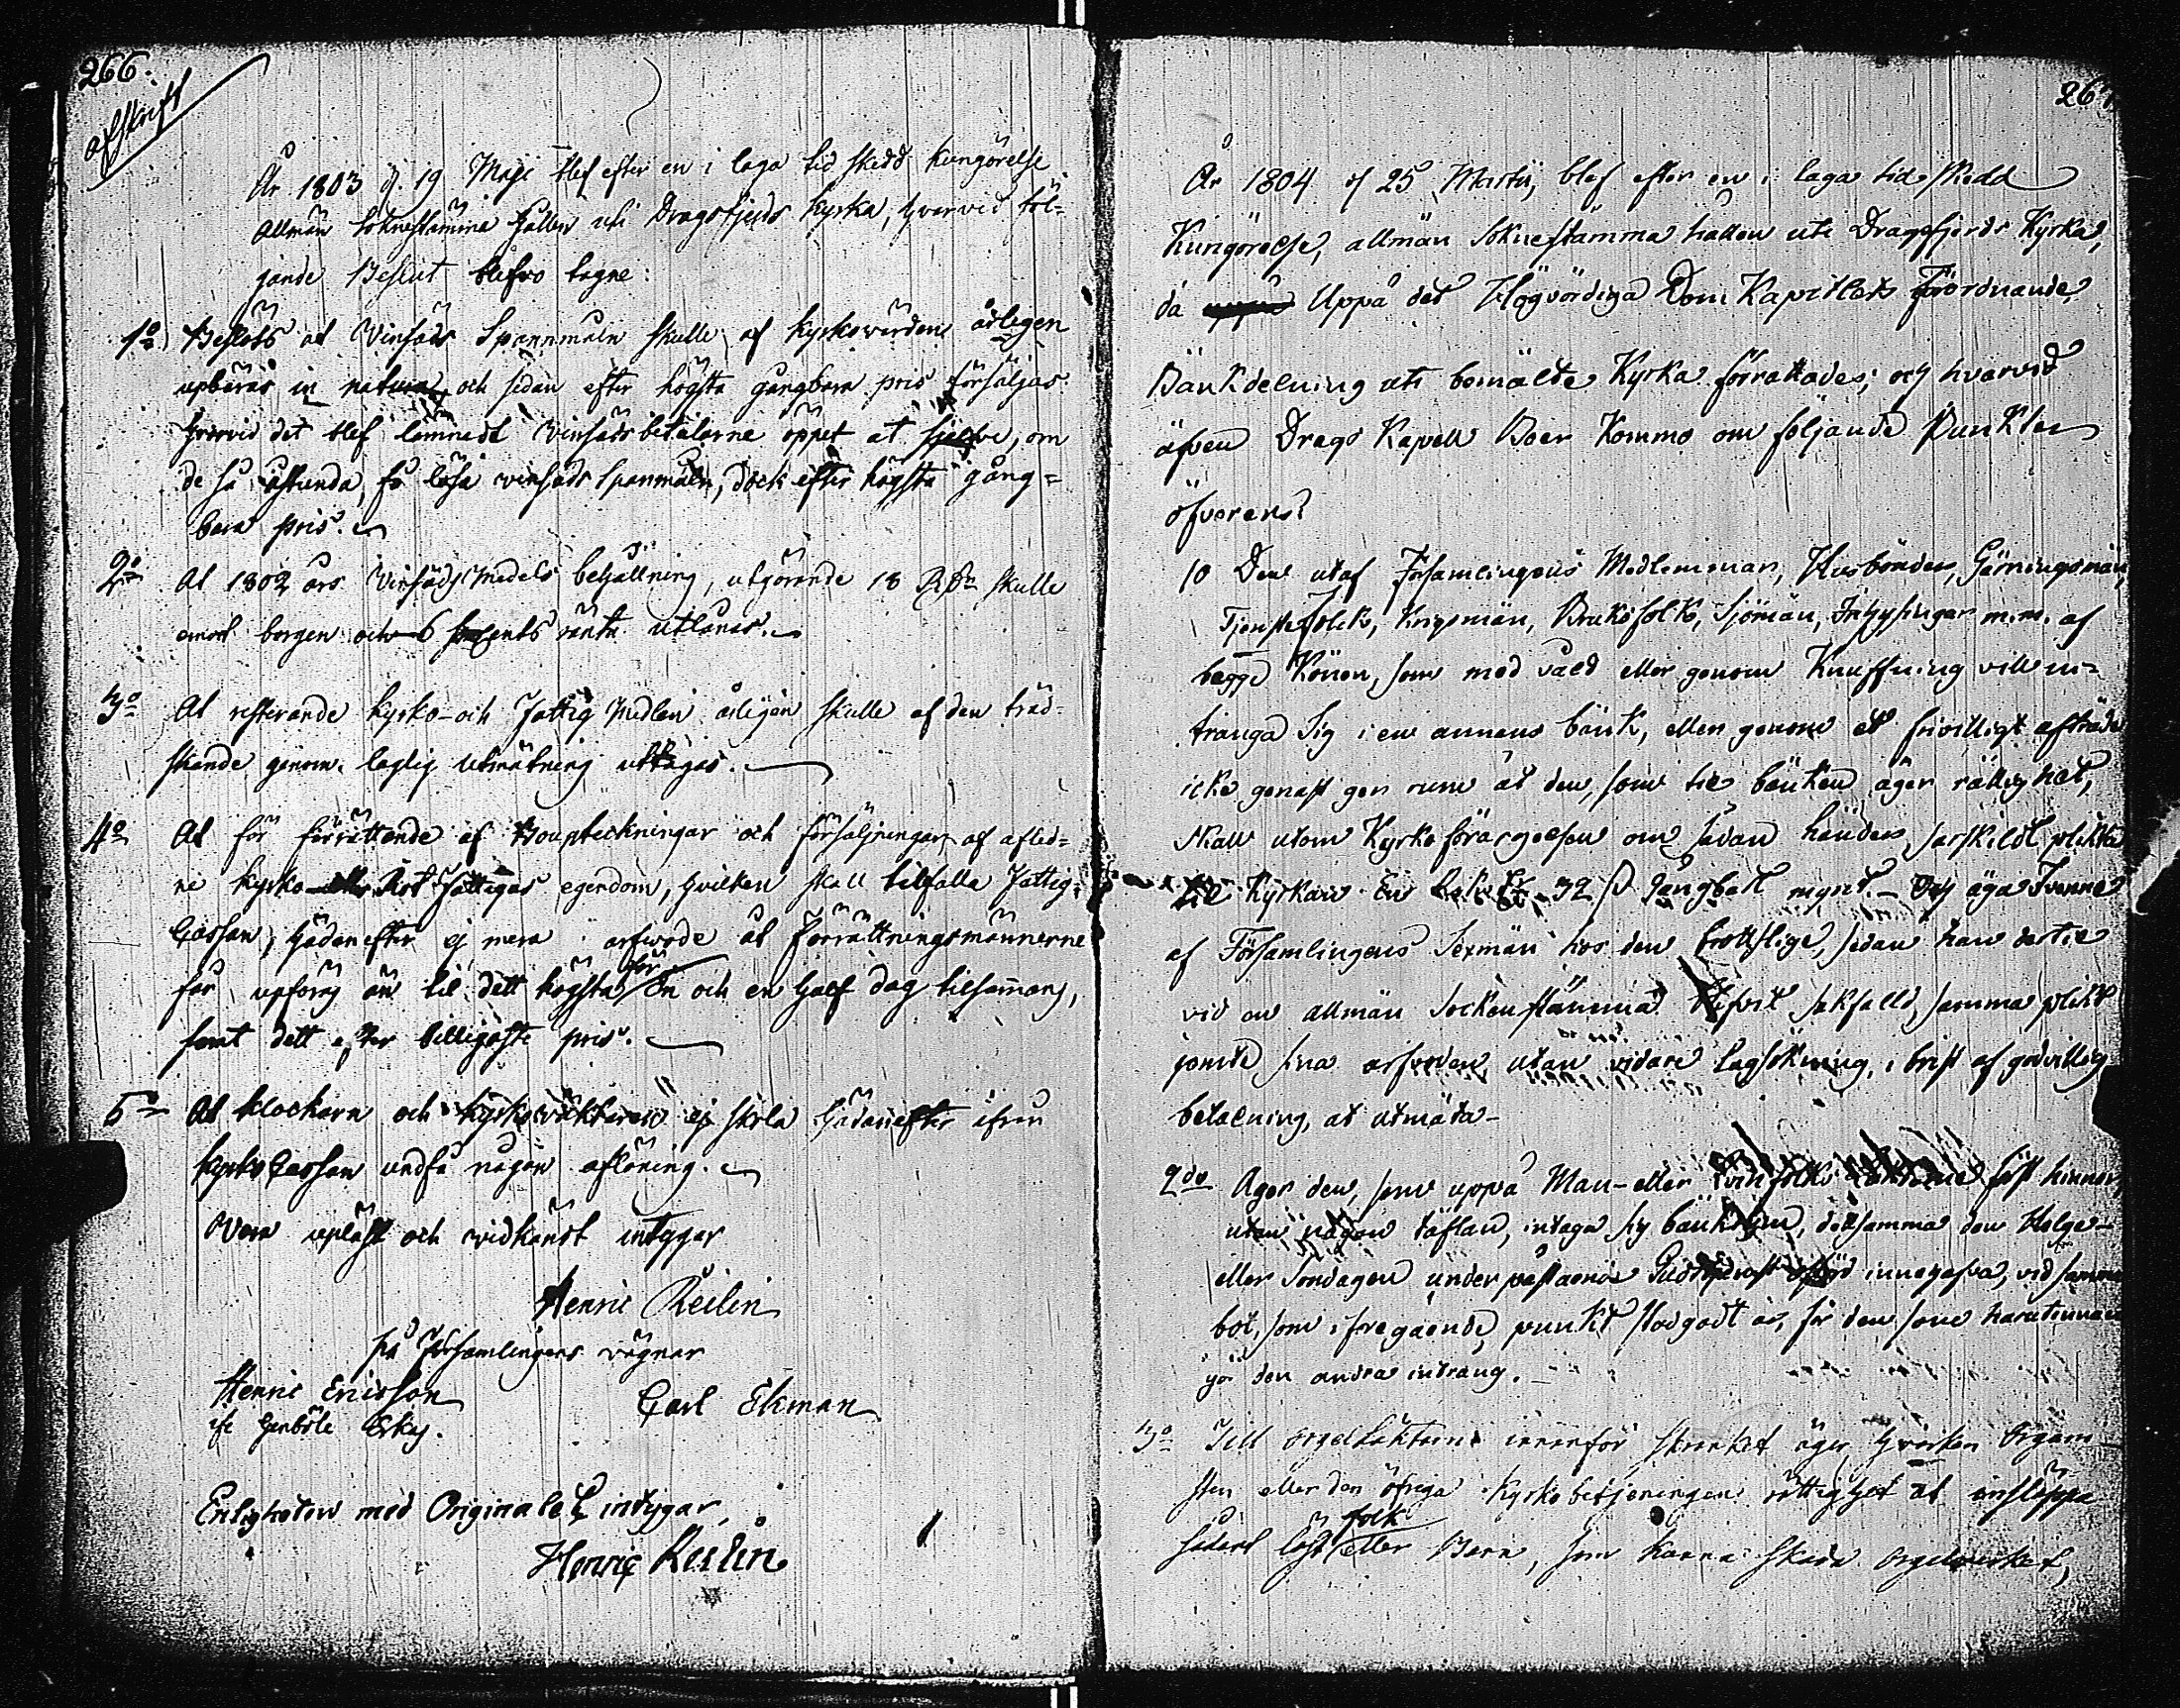 266.
afskrift
År 1803 d. 19 Maji blef efter en i laga tid skedd kungörelse
allmän Soknestämma hållen uti Dragsfjerds Kyrka, hvarvid föl=
jande Beslut blefvo tagne:
1o) Beslöts at Vinsäds Spannmåln skulle af kyrkowärden årligen
upbäras in natura, och sedan efter högsta gångbara pris försäljas
hvarvid det blef lämnadt Vinsädsbetalarne öppet at sjelfve, om
de så åstunda, få lösa vinsäds spanmåln, dock efter högsta gång=
bara pris.
2o At 1802 års Vinsäds Medels behållning, utgörande 18 Rdr skulle
emot borgen och 6 procents ränta utlånas.
3o At resterande kyrko- och Fattig Medlen årligen skulle af den tred-
skande genom laglig Utmätning uttagas.
4o At för förrättande af Boupteckningar och försäljningar af afled=
ne kyrko- eller Rot Fattigas egendom, hvilken skall tillfalla Fattig=
Cassan, hädanefter ej mera arfwode åt Förrättningsmännerne
för
får upföras än til dett högsta En och en half dag tilsammans,
samt dett efter billigaste pris.
5o At klockaren och kyrkowäktaren ej skola hädanefter ifrån
kyrko Cassan undfå någon aflöning.
Vara upläst och widkänt intygar
Henric Reilin
på Församlingens vägnar
Henric Ericsson Carl Ekman
ifr. Genböle Eskis.
Enligheten med Originalet intygar,
Henric Reilin
267
År 1804 d 25 Martii, blef efter en i laga tid skedd
Kungörelse, allmän Soknestämma hållen uti Dragsfjerds Kyrka,
då Uppå det Högvördiga Dom Kapitlets Förordnande,
Bänkdelning uti bemälde Kyrka förrättades; och hvarvid
äfven Drags Kapell Boer Kommo om följande Punkter
öfverens:
1o Den utaf Församlingens Medlemmar, Husbönder, Gärningsmän,
Tjenstefolck, Krigsmän, Bruksfolk, Sjömän, Inhysingar m.m. af
bägge Könen, som med våld eller genom Knuffning vill in=
tränga sig i en annans bänk, eller genom et frivilligt afträde
icke genast ger rum åt den, som til bänken äger rättighet,
skall utom Kyrkoförargelsen om sådan händer, särskildt plikta
til Kyrkan En 32 s Gångbart mynt. - Och äga Tvenne
af Församlingens Sexmän hos den brottslige, sedan han dertil
vid en allmän Sockenstämma blifvit sakfälld, samma plikt
jemte sina arfvoden, utan vidare lagsökning, i brist af godvillig
betalning, at utmäta-
2do Äger den, som uppå Man- eller Qvinfolks först hinner,
utan någon täflan, intaga sig bänkrum, detsamma den Helge-
eller Söndagen under påstående Gudstjenst innehafva, vid samma
bot, som i föregående punkt stadgadt är, för den som
gör den andra intrång.
3o Till Orgelläktaren innanför skranket äger hvarken Organi-
sten eller den öfriga Kyrkobetjeningen rättighet at insläppa
folk
sådant löst eller Barn, som kunna skada Orgelverket,